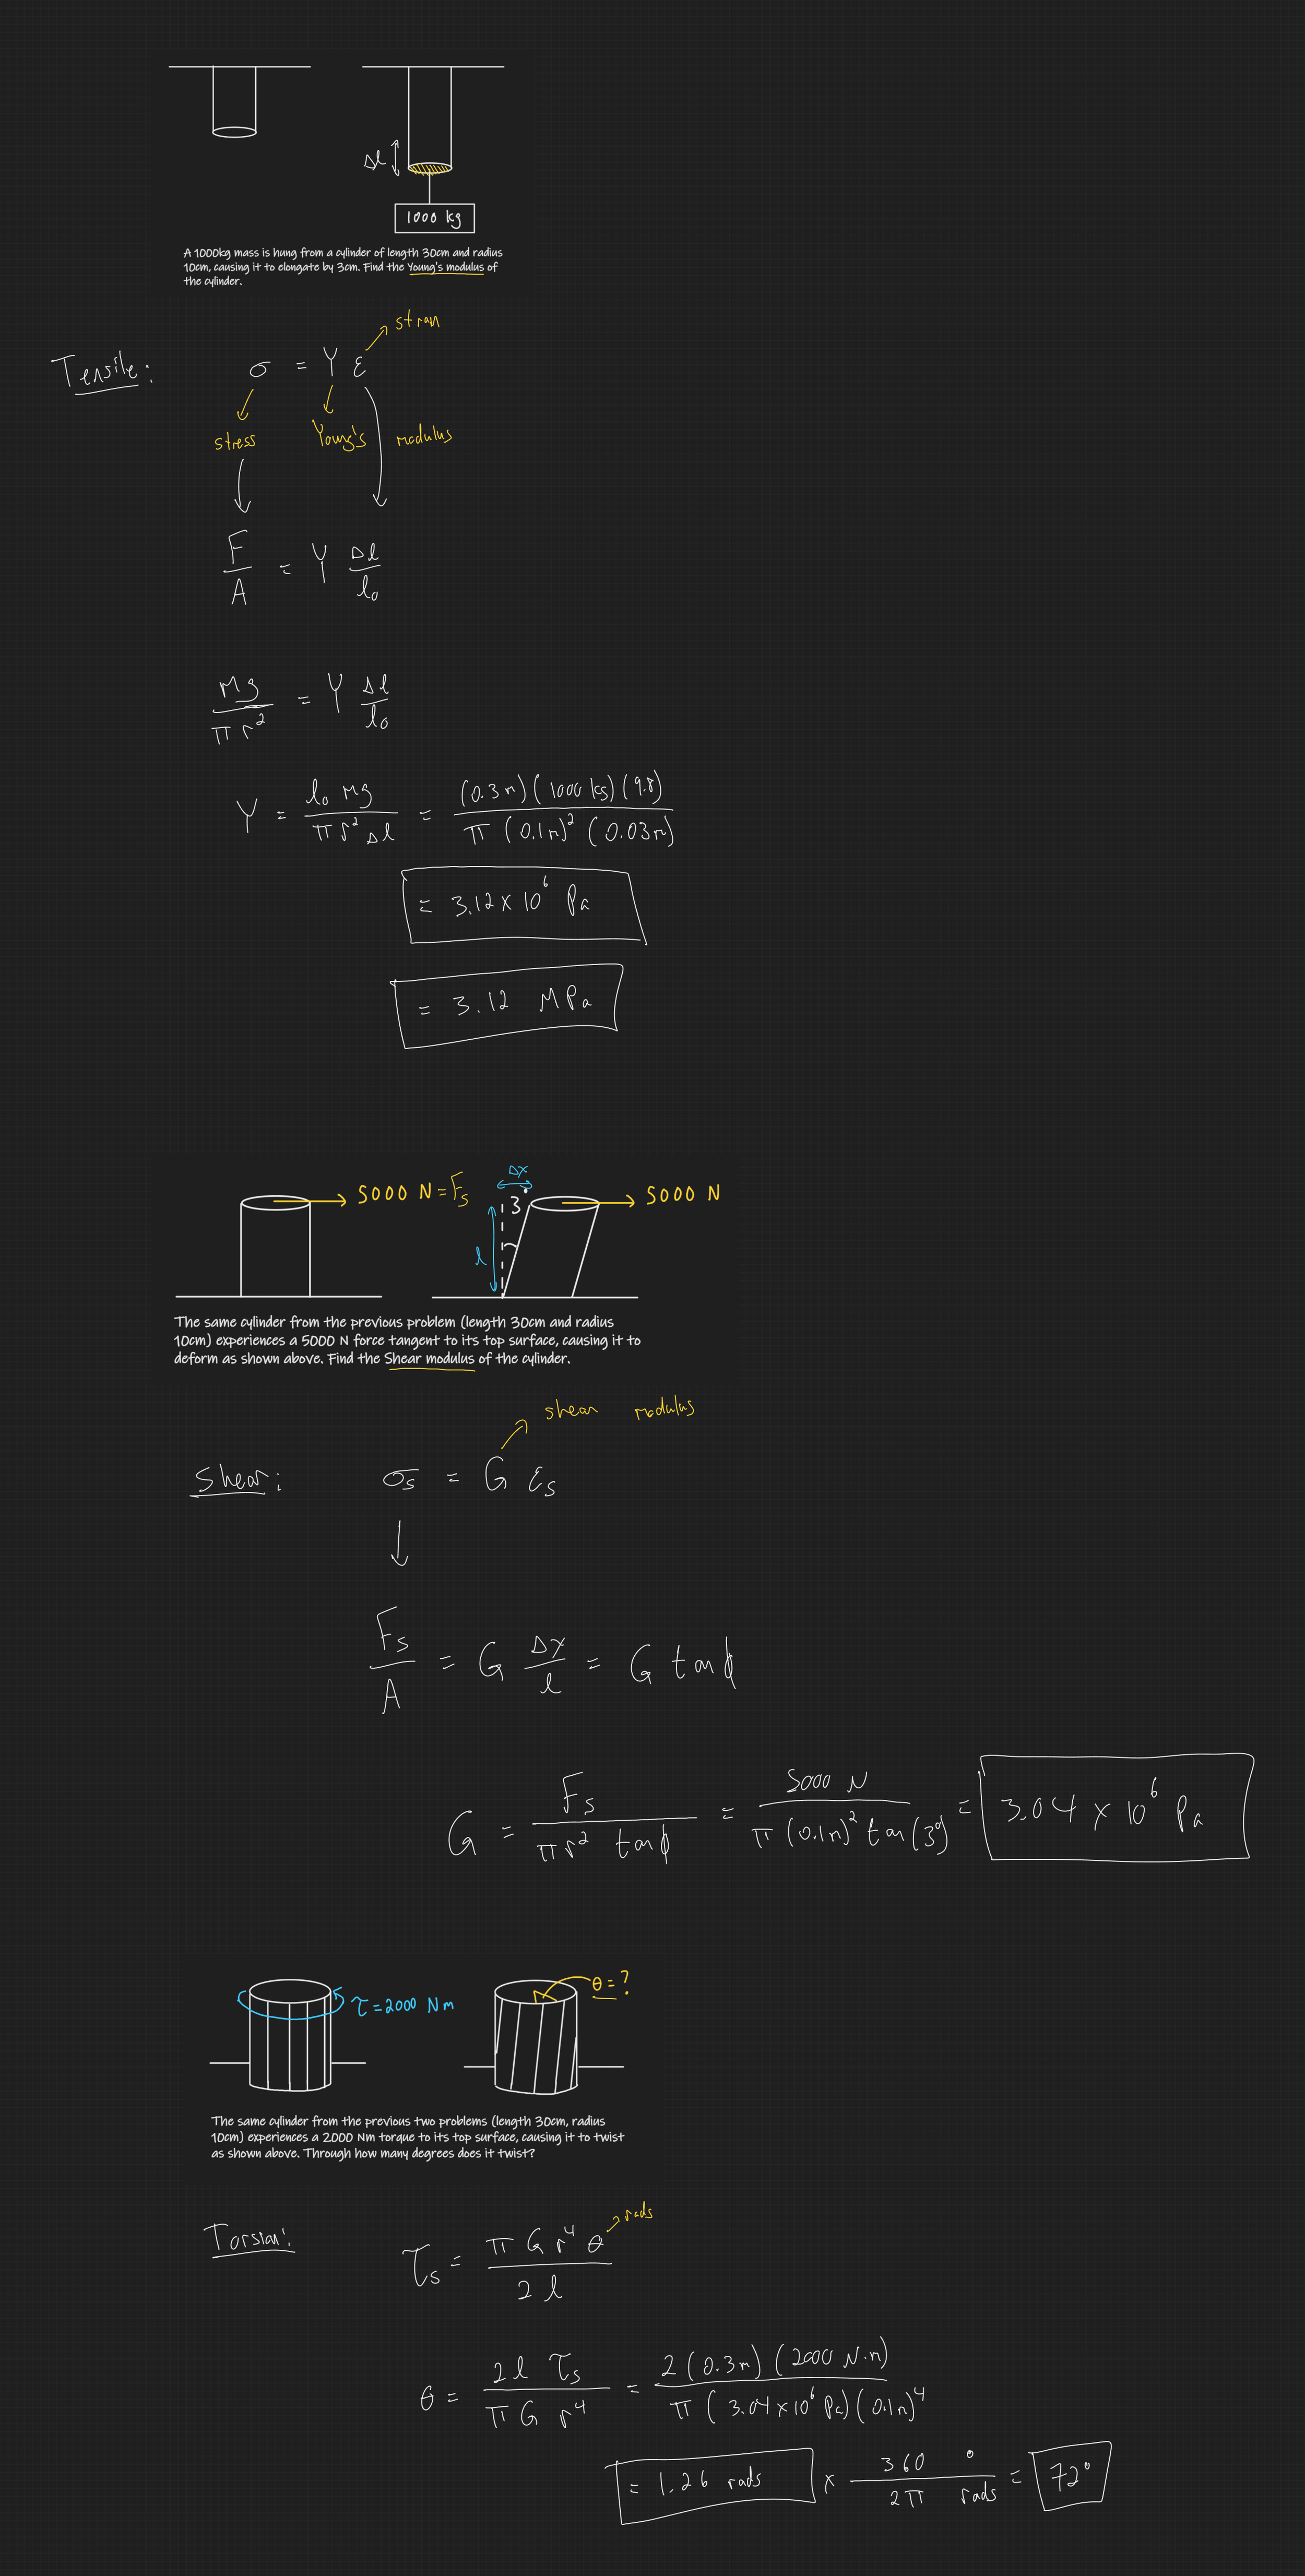 Δl
1000 kg
A 1000kg mass is hung from a cylinder of length 30cm and radius
10cm, causing it to elongate by 3cm. Find the Young's modulus of
the cylinder.
stran
Tensile: σ = Y ε
stress Young's modulus
F/A = Y Δl/l₀
Mg/πr² = Y Δl/l₀
Y = l₀Mg/πr²Δl = (0.3m)(1000 kg)(9.8)/π(0.1m)²(0.03m)
= 3.12 x 10⁶ Pa
= 3.12 MPa
Δx
5000 N = Fs 3° 5000 N
l
The same cylinder from the previous problem (length 30cm and radius
10cm) experiences a 5000 N force tangent to its top surface, causing it to
deform as shown above. Find the Shear modulus of the cylinder.
shear modulus
Shear: σs = G εs
Fs/A = G Δx/l = G tanϕ
G = Fs/πr² tanϕ = 5000 N/π(0.1m)² tan(3°) = 3.04 x 10⁶ Pa
τ = 2000 Nm θ = ?
The same cylinder from the previous two problems (length 30cm, radius
10cm) experiences a 2000 Nm torque to its top surface, causing it to twist
as shown above. Through how many degrees does it twist?
rads
Torsion: τs = πGr⁴θ/2l
θ = 2lτs/πGr⁴ = 2(0.3m)(2000 N·m)/π(3.04x10⁶ Pa)(0.1m)⁴
= 1.26 rads x 360°/2π rads = 72°